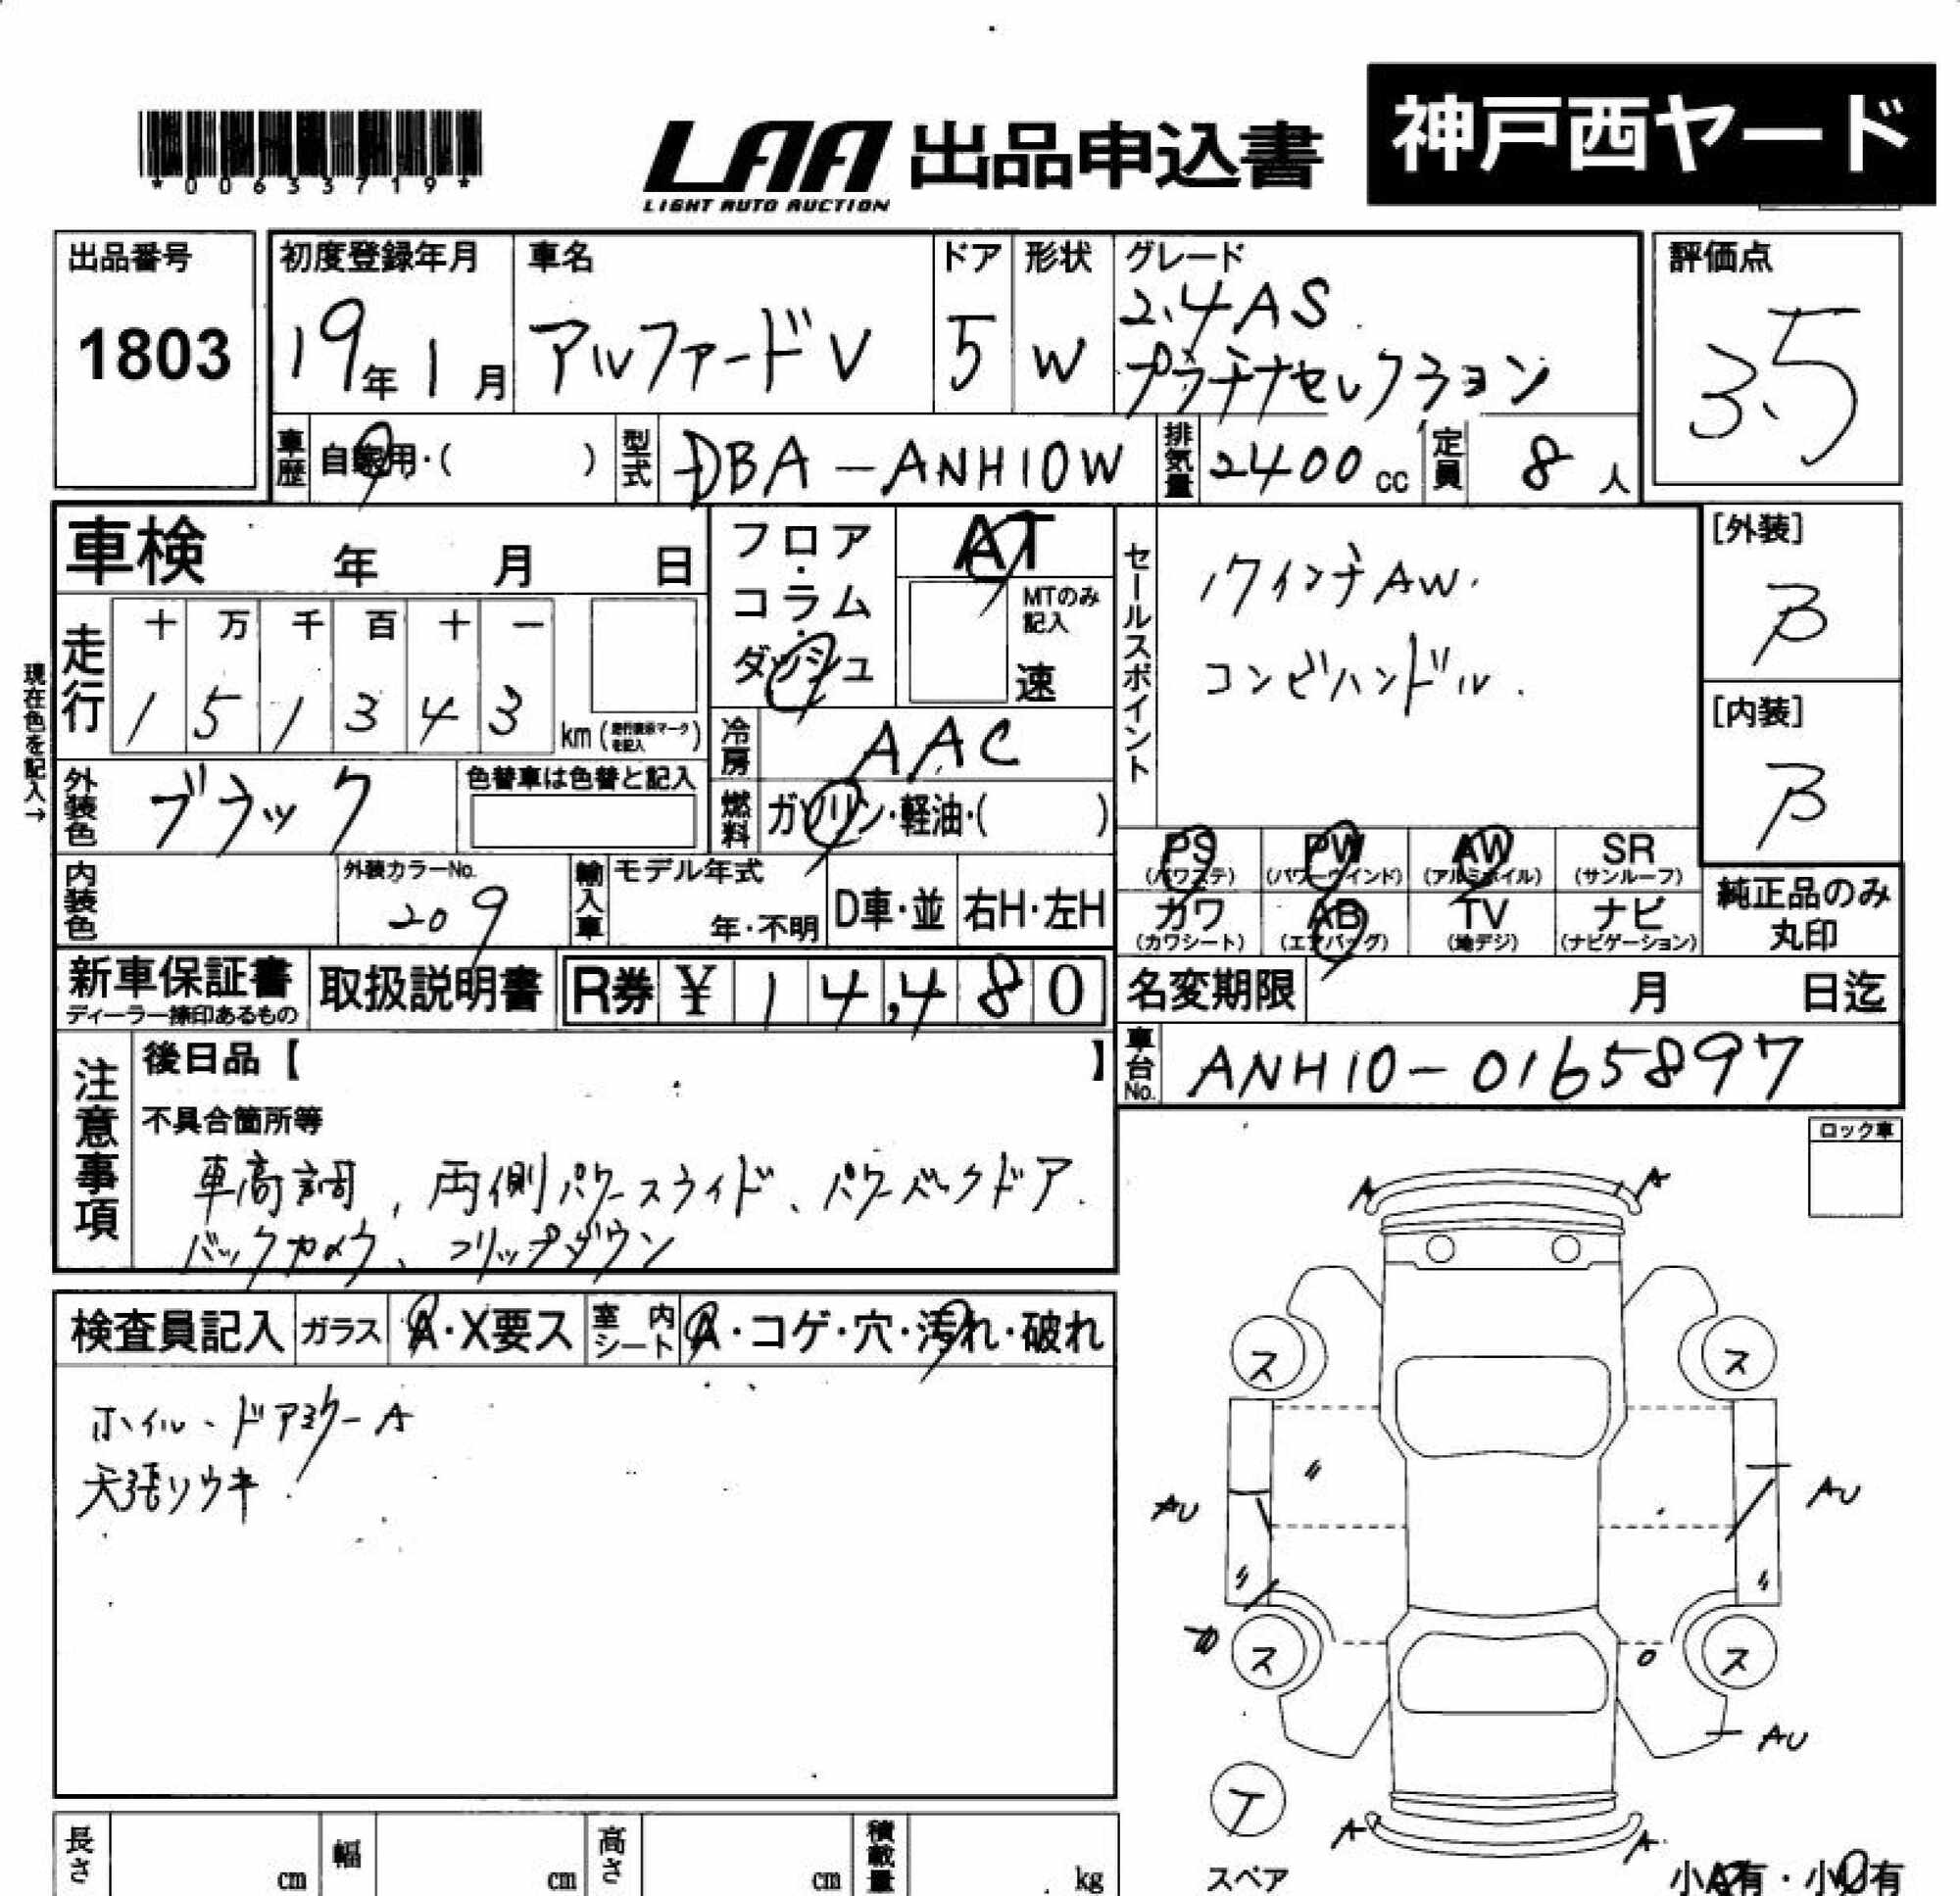 神戸西ヤード
*00633719*
LAA 出品申込書
LIGHT AUTO AUCTION
出品番号
1803
初度登録年月
19年1月
車名
アルファードV
ドア
5
形状
W
グレード
2.4AS
プラチナセレクション
評価点
3.5
車歴
自家用・( )
型式
DBA-ANH10W
排気量
2400cc
定員
8人
車検 年 月 日
フロア・コラム・ダッシュ
AT
MTのみ記入
速
セールスポイント
17インチAW.
コンビハンドル.
[外装]
B
[内装]
B
現在色を記入→
走行
十 万 千 百 十 一
1 5 1 3 4 3
km(走行表示マークを記入)
冷房
AAC
外装色
ブラック
色替車は色替と記入
燃料
ガソリン・軽油・( )
PS
(パワステ)
PW
(パワーウインド)
AW
(アルミホイル)
SR
(サンルーフ)
カワ
(カワシート)
AB
(エアバッグ)
TV
(地デジ)
ナビ
(ナビゲーション)
純正品のみ
丸印
内装色
外装カラーNo.
209
輸入車
モデル年式
年・不明
D車・並
右H・左H
新車保証書
ディーラー捺印あるもの
取扱説明書
R券 ¥ 14,480
名変期限 月 日迄
車台No.
ANH10-0165897
注意事項
後日品【 】
不具合箇所等
車高調、両側パワースライド、パワーバックドア.
バックカメラ、フリップダウン
ロック車
検査員記入
ガラス
A・X要ス
室内シート
A・コゲ・穴・汚れ・破れ
ホイル・ドアミラーA
天張リウキ
A A
ス ス
AU AU
ス ス
AU
T
スペア
A A
小A有・小U有
長さ cm
幅 cm
高さ cm
積載量 kg